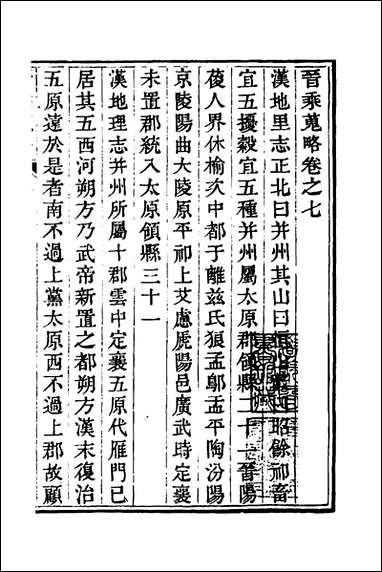 晉乘蒐略卷之七
漢地里志正北曰并州其山曰恒山藪曰昭餘祁畜
宜五擾穀宜五種并州屬太原郡領縣二十一晉陽
葰人界休榆次中都于離兹氏狼孟鄔孟平陶汾陽
京陵陽曲大陵原平祁上艾慮虒陽邑廣武時定襄
未置郡統入太原領縣三十一
漢地理志并州所屬十郡雲中定襄五原代雁門已
居其五西河朔方乃武帝新置之都朔方漢末復治
五原遠於是者南不過上黨太原西不過上郡故顧